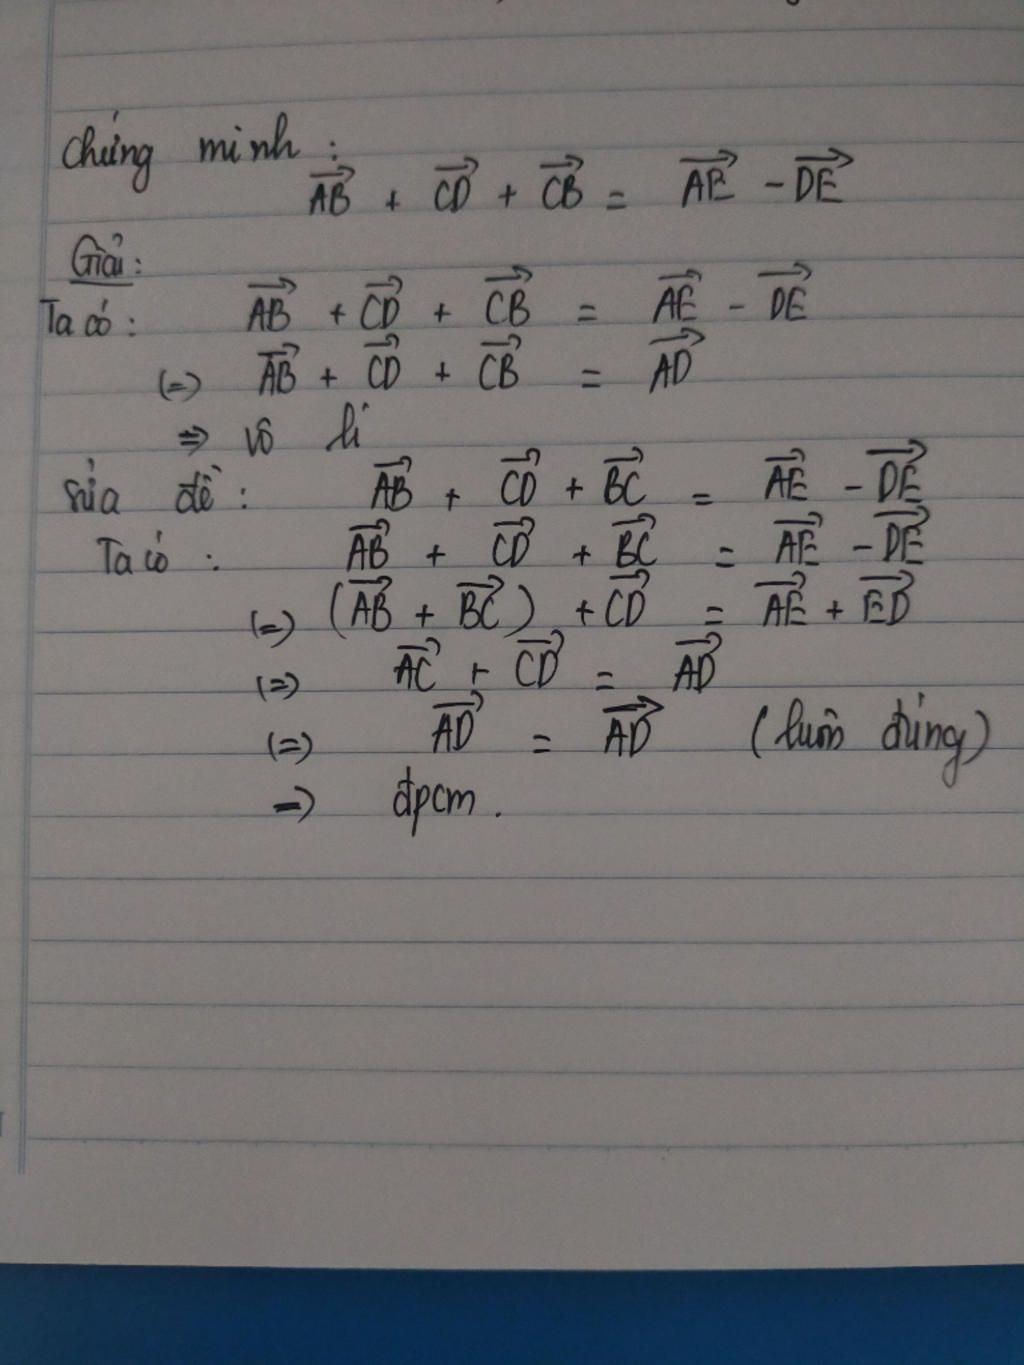 Chứng minh :
$\overrightarrow{AB} + \overrightarrow{CD} + \overrightarrow{CB} = \overrightarrow{AE} - \overrightarrow{DE}$
Giải :
Ta có : $\overrightarrow{AB} + \overrightarrow{CD} + \overrightarrow{CB} = \overrightarrow{AE} - \overrightarrow{DE}$
(=) $\overrightarrow{AB} + \overrightarrow{CD} + \overrightarrow{CB} = \overrightarrow{AD}$
=> vô lí
sửa đề : $\overrightarrow{AB} + \overrightarrow{CD} + \overrightarrow{BC} = \overrightarrow{AE} - \overrightarrow{DE}$
Ta có : $\overrightarrow{AB} + \overrightarrow{CD} + \overrightarrow{BC} = \overrightarrow{AE} - \overrightarrow{DE}$
(=) $(\overrightarrow{AB} + \overrightarrow{BC}) + \overrightarrow{CD} = \overrightarrow{AE} + \overrightarrow{ED}$
(=) $\overrightarrow{AC} + \overrightarrow{CD} = \overrightarrow{AD}$
(=) $\overrightarrow{AD} = \overrightarrow{AD}$ (luôn đúng)
=> đpcm .